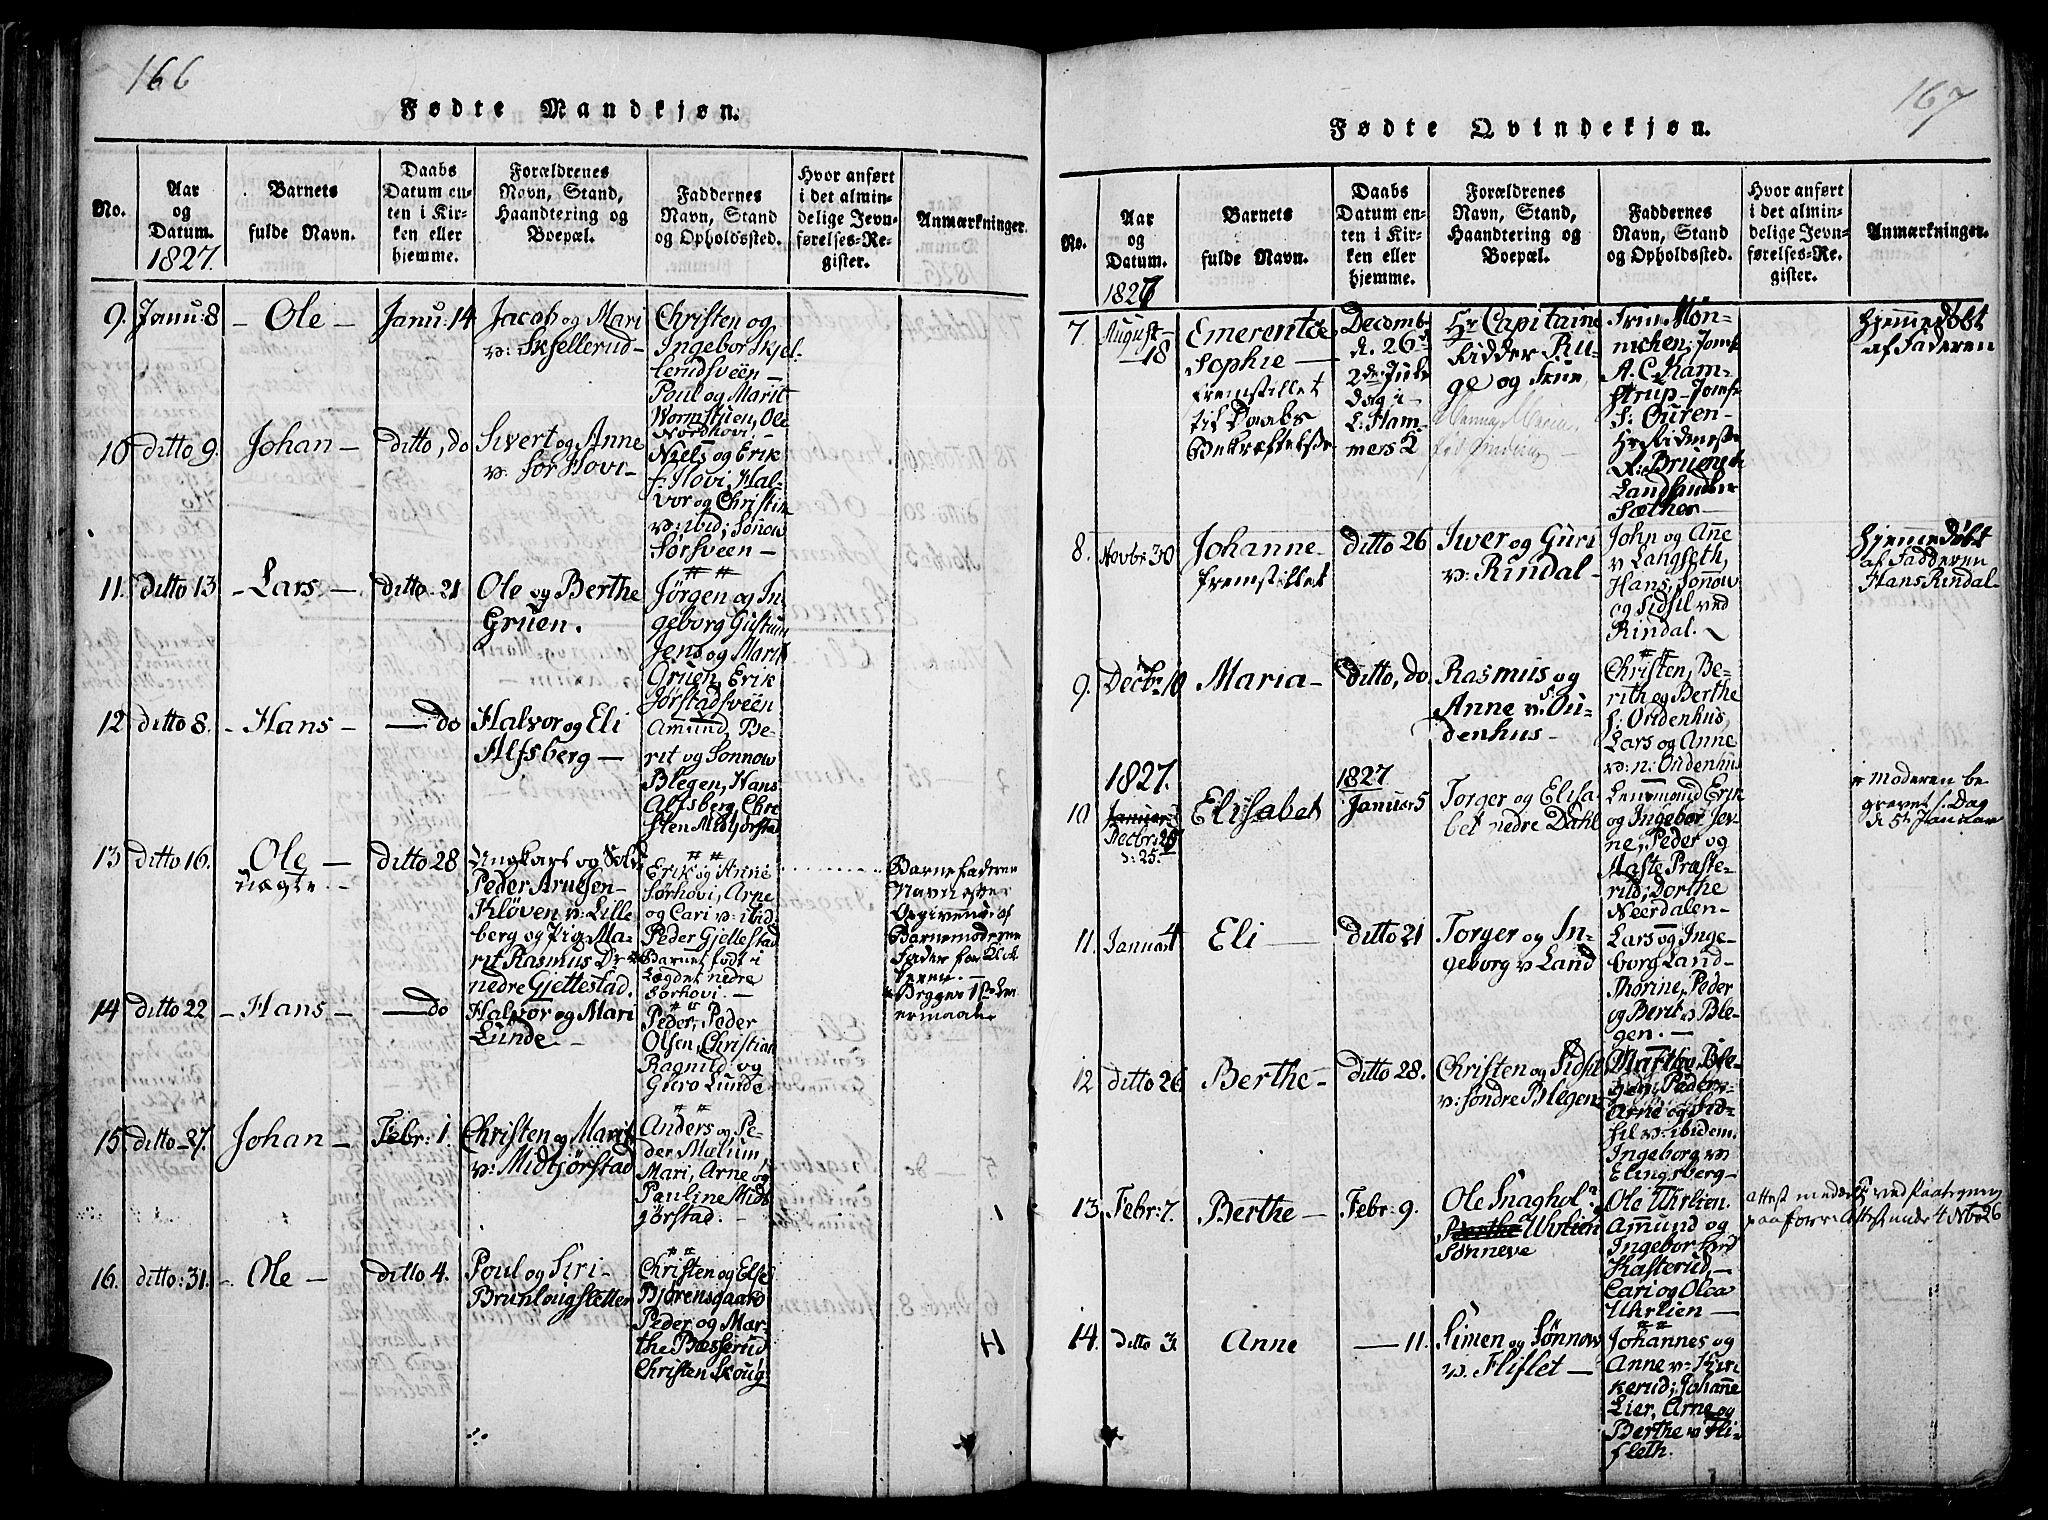 166
Fødte Mandkjøn.
No.
Aar
og
Datum.
1827.
Barnets
fulde Navn.
Daabs
Datum en-
ten i Kir-
ken eller
hjemme.
Forældrenes
Navn, Stand,
Haandtering og
Boepæl.
Faddernes
Navn, Stand
og Opholdssted.
Hvor anført
i det almin-
delige Jevn-
førelses-Re-
gister.
Anmærkninger.
9. Janu: 8
- Ole -
Janu: 14
Jacob og Mari
v: Skjellerud -
Christen og
Ingebor Skjel-
lerudsveen -
Poul og Marit
Wormstuen, Ole
Nordhovi -
10 ditto 9.
Johan -
ditto, do
Sivert og Anne
v: Sørhovi -
Niels og Erik
s: Hovi, Hal-
vor og Christin
v: ibid; Sønow
Sørsveen -
11. Ditto 13
- Lars -
ditto - 21
Ole og Berthe
Gruen.
Jørgen og In-
geborg Gustum
Jens og Marit
Gruen, Erik
Jørstadsveen
12 ditto 8.
- Hans -
— do
Halvor og Eli
Alfsberg -
Amund, Be-
rit og Sønnow
Blegen, Hans
Alfsberg, Chri-
sten Midtjørstad
13 ditto 16.
Ole -
uægte. -
ditto 28
Ungkarl og
Peder Arnesen
Kløven v: Lille
berg og Pig. Ma-
rit Rasmus D
nedre Gjettestad.
Erik og Anne
Sørhovi, Arne
og Cari v: ibid
Peder Gjellestad
Barnet født i
Lægdet nedre
Sørhovi. -
Barnefaderens
Navn efter
Opgivende af
Barnemoderens
Fader for
14 ditto 22
- Hans -
— do
Halvor og Mari
Lunde -
Peder, Peder
Olsen, Christian
Ragnild og
Guro Lunde
15 ditto - 27.
Johan -
Febr: 1.
Christen og Marit
v: Midtjørstad
Anders og Pe-
der Mælum
Mari, Arne og
Pauline Midt
jørstad: -
16. ditto: 31.
- Ole -
ditto 4.
Poul og Siri -
Brunlougsletten
Christen og Else
Bjørensgaard
Peder og Mar-
the Bæsserud
Christen Skoug
167
Fødte Qvindekjøn.
No.
Aar
og
Datum.
1826
Barnets
fulde Navn.
Daabs
Datum en-
ten i Kir-
ken eller
hjemme.
Forældrenes
Navn, Stand,
Haandtering og
Boepæl.
Faddernes
Navn, Stand
og Opholdssted.
Hvor anført
i det almin-
delige Jevn-
førelses-Re-
gister.
Anmærkninger.
7 August
18
Emerentse
Sophie -
fremstillet
til Daabs
Bekræftelse
Decemb.
d. 26
2den Jule
dag i
L: Ham-
mers 2
Hr Capitaine
Ridder Ru-
ge og Frue
Frue Mön-
nichen, Jomf
A. C. Kam-
strup - Jomf
S: Ouren -
Landhandler
Sæther -
Hjemmedøbt
af Faderen
8. Novbr: 30
Johanne -
fremstillet
ditto 26
Iwer og Guri
v: Rindal -
John og Ane
v Langseth,
Hans, Sønow
og Sidsil ved
Rindal.
Hjemmedøbt
af Fadderen
Hans Rindal
9. Decbr 10
Maria -
ditto, do
Rasmus og
Anne v: Ou-
denhus -
Christen, Be-
rith og Berthe
s: Oudenhus,
Lars og Anne
v: n: Oudenhus
1827.
10 Januar
Decbr: 25
d: 25.
Elisabet
1827
Januar 5
Torger og Elisa-
bet nedre Dahl
Lensmand Erik
og Ingebor Jev-
ne, Peder og
Maste Præste-
rud; Dorthe
Neerdalen -
Moderen be-
gravet s. Dag
d 5te Januar
11. Januar 4
Eli -
ditto 21
Torger og In-
geborg v Land
Lars og Inge-
borg Land -
Thorine, Peder
og Berit v: Ble-
gen. -
12 ditto 26
Berthe -
ditto 28.
Christen og Sidsil
v: søndre Blegen
Marthe Ble-
gen, Peder
Arne og Sid-
sil v: ibidem.
Ingeborg v:
Elingsberg -
13. Febr: 7.
Berthe -
Febr: 9.
Ole Snaghol
Berthe Uhrlien
Sønneve
Ole Uhrlien.
Amund og
Ingebor
Kasterud, -
Cari og Olea
Uhrlien -
14. ditto 3.
Anne
— 11.
Simen og Sønnow
v: Flislet -
Johannes og
Anne v: Kir-
kerud; Johanne
Lier, Arne og
Berthe v: Fli-
sleth.